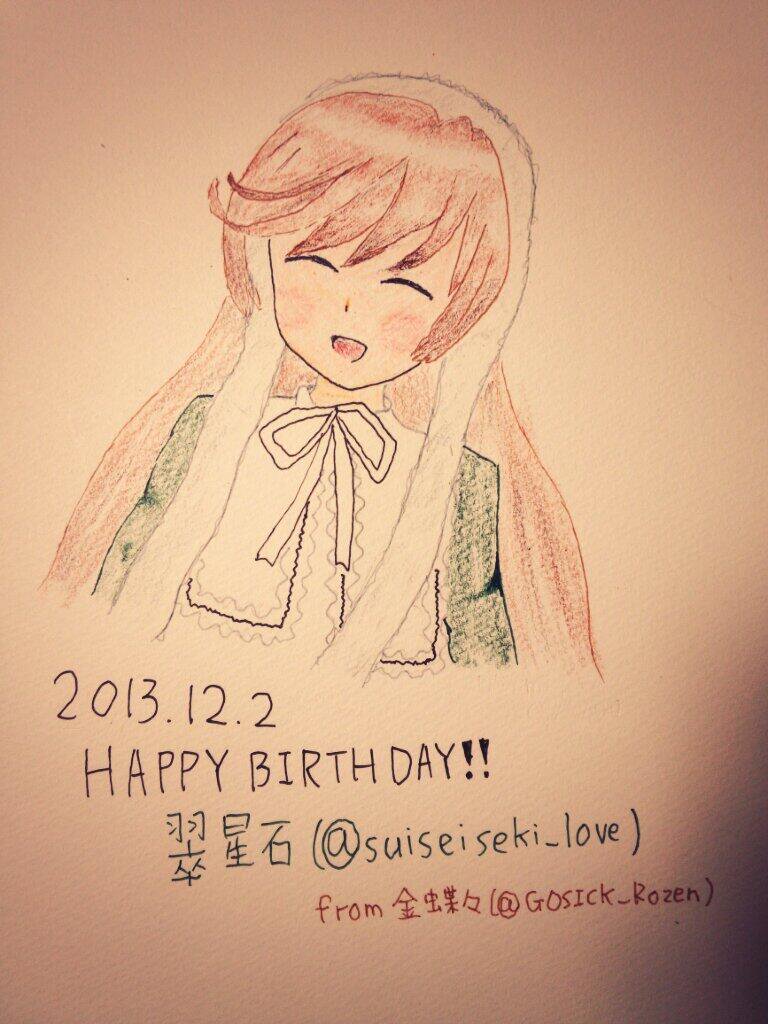 2013.12.2
HAPPY BIRTHDAY!!
翠星石(@suiseiseki_love)
from 金蝶々(@GOSICK_Rozen)